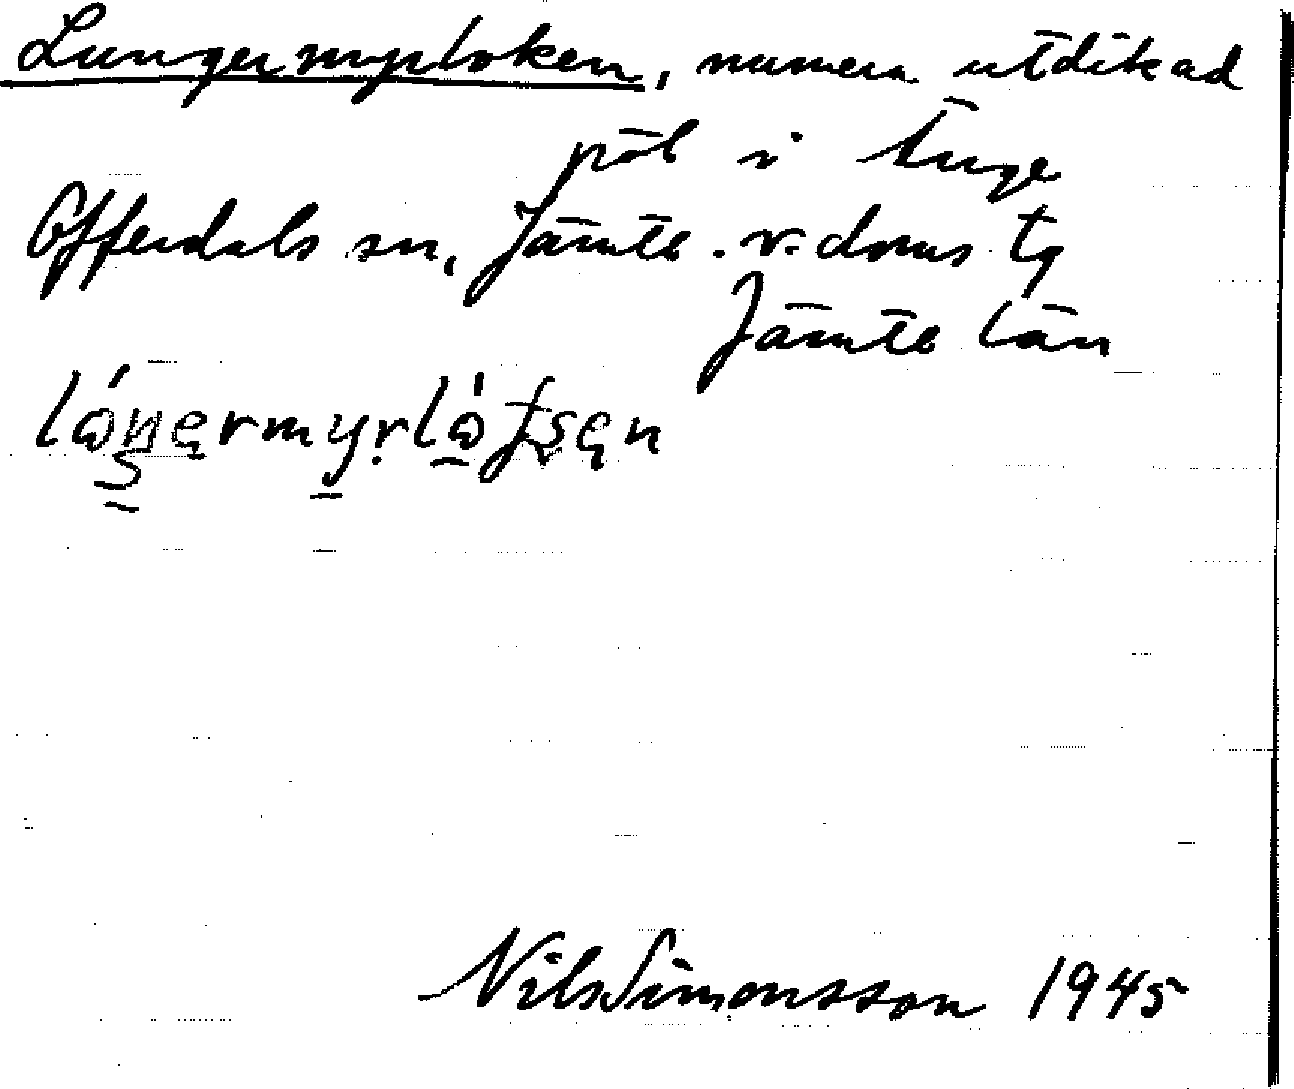 Lungermyrloken, numera utdikad
pöl i Änge
Offerdals sn, Jämtl. v. doms. tg
Jämtl län
Nils Simonsson 1945